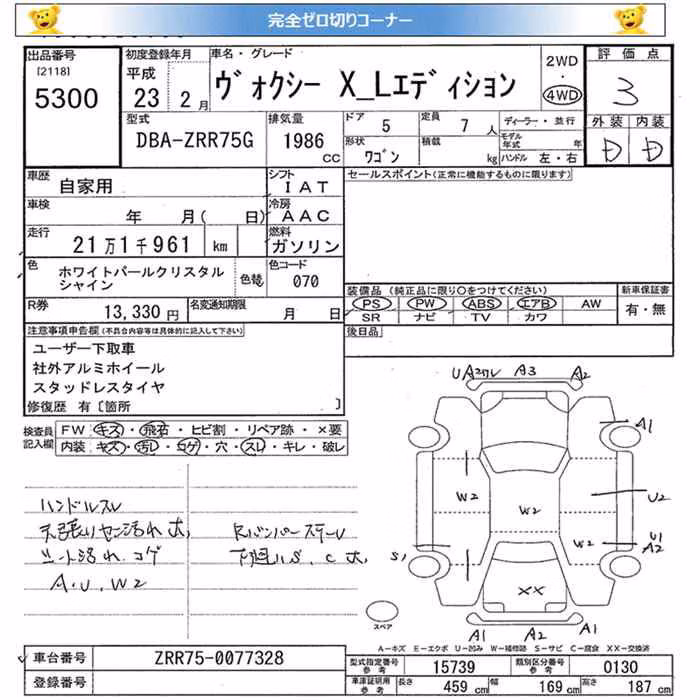 完全ゼロ切りコーナー
出品番号
[2118]
5300
初度登録年月
平成
23 2月
車名・グレード
ヴォクシー X_Lエディション
2WD
・
4WD
評価点
3
外装 内装
D D
型式
DBA-ZRR75G
排気量
1986
CC
ドア 5
定員 7 人
形状 ワゴン
積載 kg
ディーラー・並行
モデル年式 年
ハンドル 左・右
車歴
自家用
シフト
IAT
車検
年 月( 日)
冷房
AAC
走行
21万1千961 km
燃料
ガソリン
色
ホワイトパールクリスタル
シャイン
色替
色コード
070
R券
13,330円
名変通知期限
月 日
セールスポイント(正常に機能するものに限ります)
装備品(純正品に限り○をつけてください)
PS PW ABS エアB AW
SR ナビ TV カワ
新車保証書
有・無
後日品
注意事項申告欄(不具合内容等は具体的に記入して下さい)
ユーザー下取車
社外アルミホイール
スタッドレスタイヤ
修復歴 有〔箇所 〕
検査員記入欄
FW キズ・飛石・ヒビ割・リペア跡・×要
内装 キズ・汚レ・コゲ・穴・スレ・キレ・破レ
ハンドルスレ
天張りヤニ汚れ大、
シート汚れ、コゲ
A、U、W2
Rバンパースチール
下廻りS、C大、
A3
A2
A1
W2
W2
U2
W2
U1
A2
S1
XX
A1
A2
A1
スペア
A-キズ E-エクボ U-凹み W-補修跡 S-サビ C-腐食 XX-交換済
車台番号
ZRR75-0077328
登録番号
型式指定番号
参考
15739
類別区分番号
参考
0130
車庫証明用
参考
長さ 459 cm
幅 169 cm
高さ 187 cm